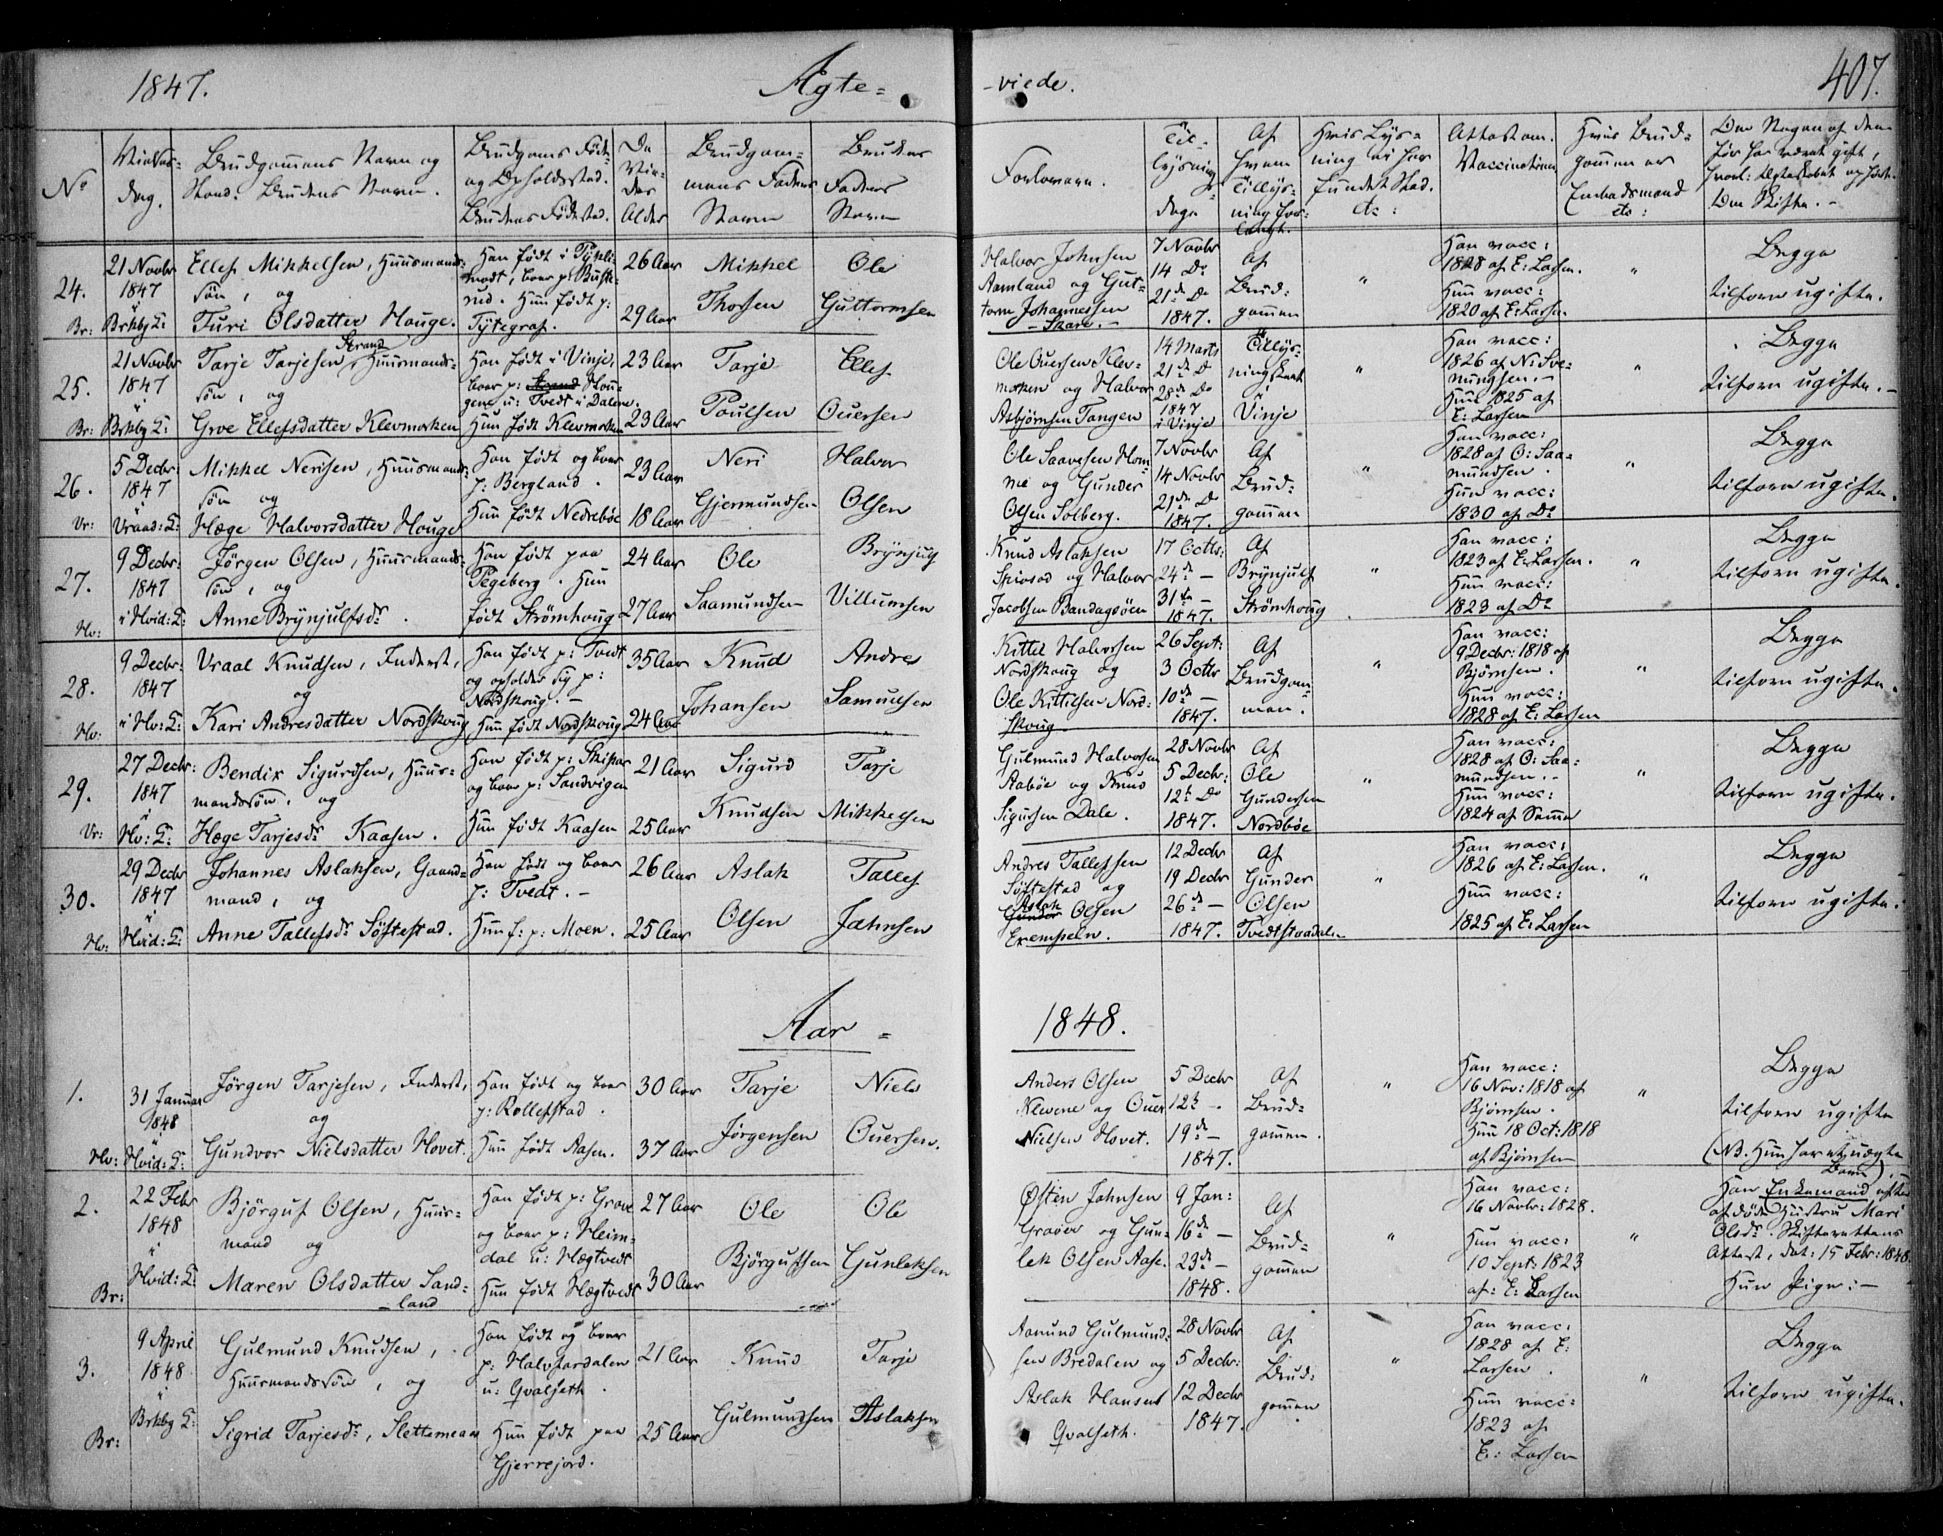 1847.
Ægte-
-viede.
407.
No
Vielses-
dag.
Brudgommens Navn og
Stand. Brudens Navn.
Brudgoms Føde-
og Opholdssted.
Brudens Fødested.
Alder
Brudgom-
mens Faders
Navn
Brudens
Faders
Navn
Forlovern.
Til-
lysnings
dage
Af
hvem
Tillys-
ning for-
langt.
Hvis Lys-
ning ei har
fundet Sted.
etc:
Attest om
Vaccinationen
Hvis Brud-
gommen er
Embedsmand
etc:
24.
Br:
21 Novbr
1847
i
Brkbg K:
Ellef Mikkelsen, Huusmands-
søn, og
Turi Olsdatter Houge.
26 Aar
29 Aar
Mikkel
Thorsen
Ole
Guttormsen
Halvor Johnsen
Aamland og Gut-
torm Johannessen
Skare. -
7 Novbr
14 Do
21de Do
1847.
Af
Brud-
gommen
"
Han vacc:
1828 af E: Larsen.
Hun vacc:
1820 af E: Larsen
"
Begge
tilforn ugifte.
25.
Br:
21 Novbr
1847
i
Brkbg K:
Strand
Tarje Tarjesen, Huusmands-
søn, og
Groe Ellefsdatter Klevmoken
Han født i Vinje,
boer p: Strand Hou-
gene u: Tvedt i Dalene.
Hun født Klevmoken
23 Aar
23 Aar
Tarje
Poulsen
Ellef
Ouersen
Ole Ouersen Klev-
moken og Halvor
Asbjørnsen Tangen
14 Marts
21de Do
28de Do
1847
i Vinje
Tillys-
ningsseet
Vinje
"
Han vacc:
1826 af N: Sve-
nungsen. -
Hun 1825 af
E: Larsen
Begge
tilforn ugifte. -
26.
Vr:
5 Decbr:
1847
i
Vraad: K:
Mikkel Nerisen, Huusmands-
søn og
Hæge Halvorsdatter Houge
Han født og boer
p: Bergland.
Hun født Nedrebøe
23 Aar
18 Aar
Neri
Gjermundsen
Halvor
Olsen
Ole Saavesen Hom-
me og Gunder
Olsen Solberg.
7 Novbr
14 Novbr
21de Do
1847.
Af
Brud-
gommen
"
Han vacc:
1828 af O: Saa-
mundsen.
Hun vacc:
1830 af Do
"
Begge
tilforn ugifte.
27.
Hv:
9 Decbr:
1847
i Hvid: K:
Jørgen Olsen, Huusmands-
søn, og
Anne Brynjulfsdr.
Han født paa
Tegeberg. Hun
født Strømhoug
24 Aar
27 Aar
Ole
Saamundsen
Brynjulf
Villumsen
Knud Aslaksen
Spirsod og Halvor
Jacobsen Bandagsøen
17 Octbr:
24de -
31te -
1847.
Af
Brynjulf
Strømhoug
"
Han vacc:
1823 af E: Larsen.
Hun vacc:
1823 af Do
"
Begge
tilforn ugifte.
28.
Hv:
9 Decbr:
1847
i Hv: K:
Vraal Knudsen, Inderst,
og
Kari Andresdatter Nordskoug
Han født p: Tvedt
og opholder sig p:
Nordskoug. -
Hun født Nordskoug
35 Aar
24 Aar
Knud
Johansen
Andres
Samuelsen
Kittel Halvorsen
Nordskoug og
Ole Kittilsen Nord-
skoug
26 Sept:
3 Octbr
10de -
1847.
Af
Brudgom-
men.
"
Han vacc:
9 Decbr: 1818 af
Bjørnsen.
Hun vacc:
1828 af E: Larsen
"
Begge
tilforn ugifte.
29.
Vr:
27 Decbr:
1847
i
Hv: K:
Bendix Sigurdsen, Huus-
mandssøn, og
Hæge Tarjesdr Kaasen.
Han født p: Skipar
og boer p: Sandvigen
Hun født Kaasen
21 Aar
25 Aar
Sigurd
Knudsen
Tarje
Mikkelsen
Gulmund Halvorsen
Aabøe og Knud
Sigursen Dale.
28 Novbr
5 Decbr:
12te Do
1847.
Af
Ole
Gundersen
Nordbøe
"
Han vacc:
1828 af O: Saa-
mundsen. -
Hun vacc:
1824 af Samme
"
Begge
tilforn ugifte.
30.
Hv:
29 Decbr
1847
i
Hvid: K:
Johannes Aslaksen, Gaard-
mand, og
Anne Tallefsdr Søftestad.
Han født og boer
p: Tvedt. -
Hun f: p: Moen.
26 Aar
25 Aar
Aslak
Olsen
Tallef
Jahnsen
Andres Tallefsen
Søftestad og
Aslak
Gunder Olsen
Exempeln.
12 Decbr
19 Decbr
26de -
1847.
Af
Gunder
Olsen
Tvedtstaadalen
"
Han vacc:
1826 af E: Larsen.
Hun vacc:
1825 af E: Larsen
"
Begge
tilforn ugifte.
Aar -
1848.
1.
Hv:
31 Januar
1848
i
Hvid: K:
Jørgen Tarjesen, Inderst,
og
Gundvor Nielsdatter Hovet.
Han født og boer
p: Rollefstad.
Hun født Aasen.
30 Aar
37 Aar
Tarje
Jørgensen
Niels
Ouersen.
Anders Olsen
Klevene og Ouer
Nielsen Hovet.
5 Decbr
12te -
19de -
1847.
Af
Brud-
gommen.
"
Han vacc:
16 Nov: 1818 af
Bjørnsen.
Hun 18 Oct: 1818
af Bjørnsen
"
Begge
tilforn ugifte
(NB. Hun har et uægte
Barn). -
2.
Br:
22 Febr
1848
i
Hvid: K:
Bjørguf Olsen, Huus-
mand og
Maren Olsdatter Sand-
land
Han født p: Grave
og boer p: Heim-
dal u: Hægtvedt
Hun født Hægtvedt
27 Aar
30 Aar
Ole
Bjørgufsen
Ole
Gunleksen
Østen Jahnsen
Graver og Gun-
lek Olsen Aase.
9 Jan:
16de -
23de -
1848.
Af
Brud-
gommen
"
Han vacc:
16 Novbr: 1828.
Hun vacc:
10 Sept: 1823
af: E: Larsen
"
Han Enkemand efter
afdøde Hustru Mari
Olsdr. Skifterettens
Attest, dat: 15 Febr: 1848.
Hun Pige: -
3.
Br:
9 April
1848
i
Brkbg K:
Gulmund Knudsen,
Huusmandssøn, og
Sigrid Tarjesdr, Slettemeaas
Han født og boer
p: Halvfardalen
u: Qvalseth.
Hun født paa
Gjerrejord.
21 Aar
25 Aar
Knud
Gulmundsen
Tarje
Aslaksen
Aamund Gulmund-
sen Bredalen og
Aslak Hansen
Qvalseth.
28 Novbr
5 Decbr:
12 Decbr
1847.
Af
Brud-
gommen
"
Han vacc:
1828 af E:
Larsen.
Hun vacc:
1823 af
E: Larsen
"
Begge
tilforn ugifte.